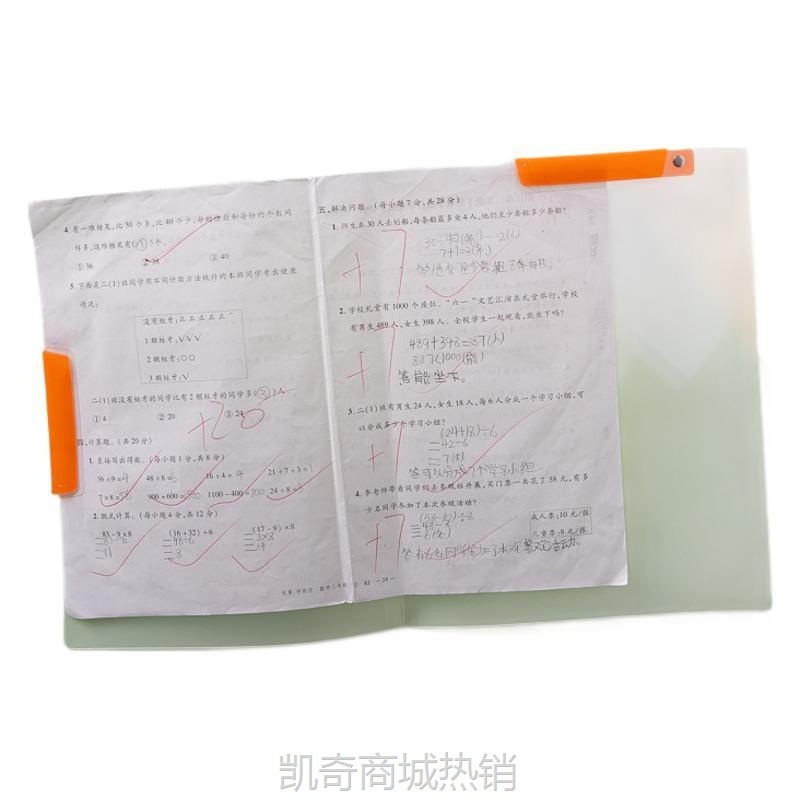 4. 有一堆糖果,比30个多,比40个少,分的份数和每份的个数同
样多,这堆糖果有(①)个。
①36 ②38 ③40
5. 下面是二(1)班同学用不同计数方法统计的本班同学牙齿健康
情况:
没有蛀牙:正正正正正
1颗蛀牙:√√√
2颗蛀牙:○○
3颗蛀牙:√
二(1)班没有蛀牙的同学比有2颗蛀牙的同学多( )人。
①4 ②20 ③24
+20
四、计算题。(共20分)
1. 直接写出得数。(每小题1分,共8分)
36÷9=4 48÷8=6 16÷4=4 21÷7÷3=1
7×8=56 900+600= 1100-400= 24÷8=3
2. 脱式计算。(每小题4分,共12分)
83-9×8 (16+32)÷6 (17-9)×8
=83-72 =48÷6
=11 =8
五、解决问题。(每小题7分,共28分)
1. 师生共30人去划船,每条船最多坐4人,他们至少要租多少条船?
30÷4=7(条)……2(人)
7+1=8(条)
+7
2. 学校礼堂有1000个座位,“六一”文艺汇演在礼堂举行,学校
有男生489人,女生398人。全校学生一起观看,能坐下吗?
489+398=887(人)
887<1000(能)
答能坐下。
+7
3. 二(1)班有男生24人,女生18人,每6人分成一个学习小组,可
以分成多少个学习小组?
(24+18)÷6
=42÷6
=7(个)
答可以分成7个学习小组
+7
4. 李老师带着同学们去参观牡丹展,买门票一共花了58元,有多
少名同学参加了本次参观活动?
成人票:10元/张
儿童票:8元/张
(58-10)÷8
=48÷8
=6(名)
+7
凯奇商城热销